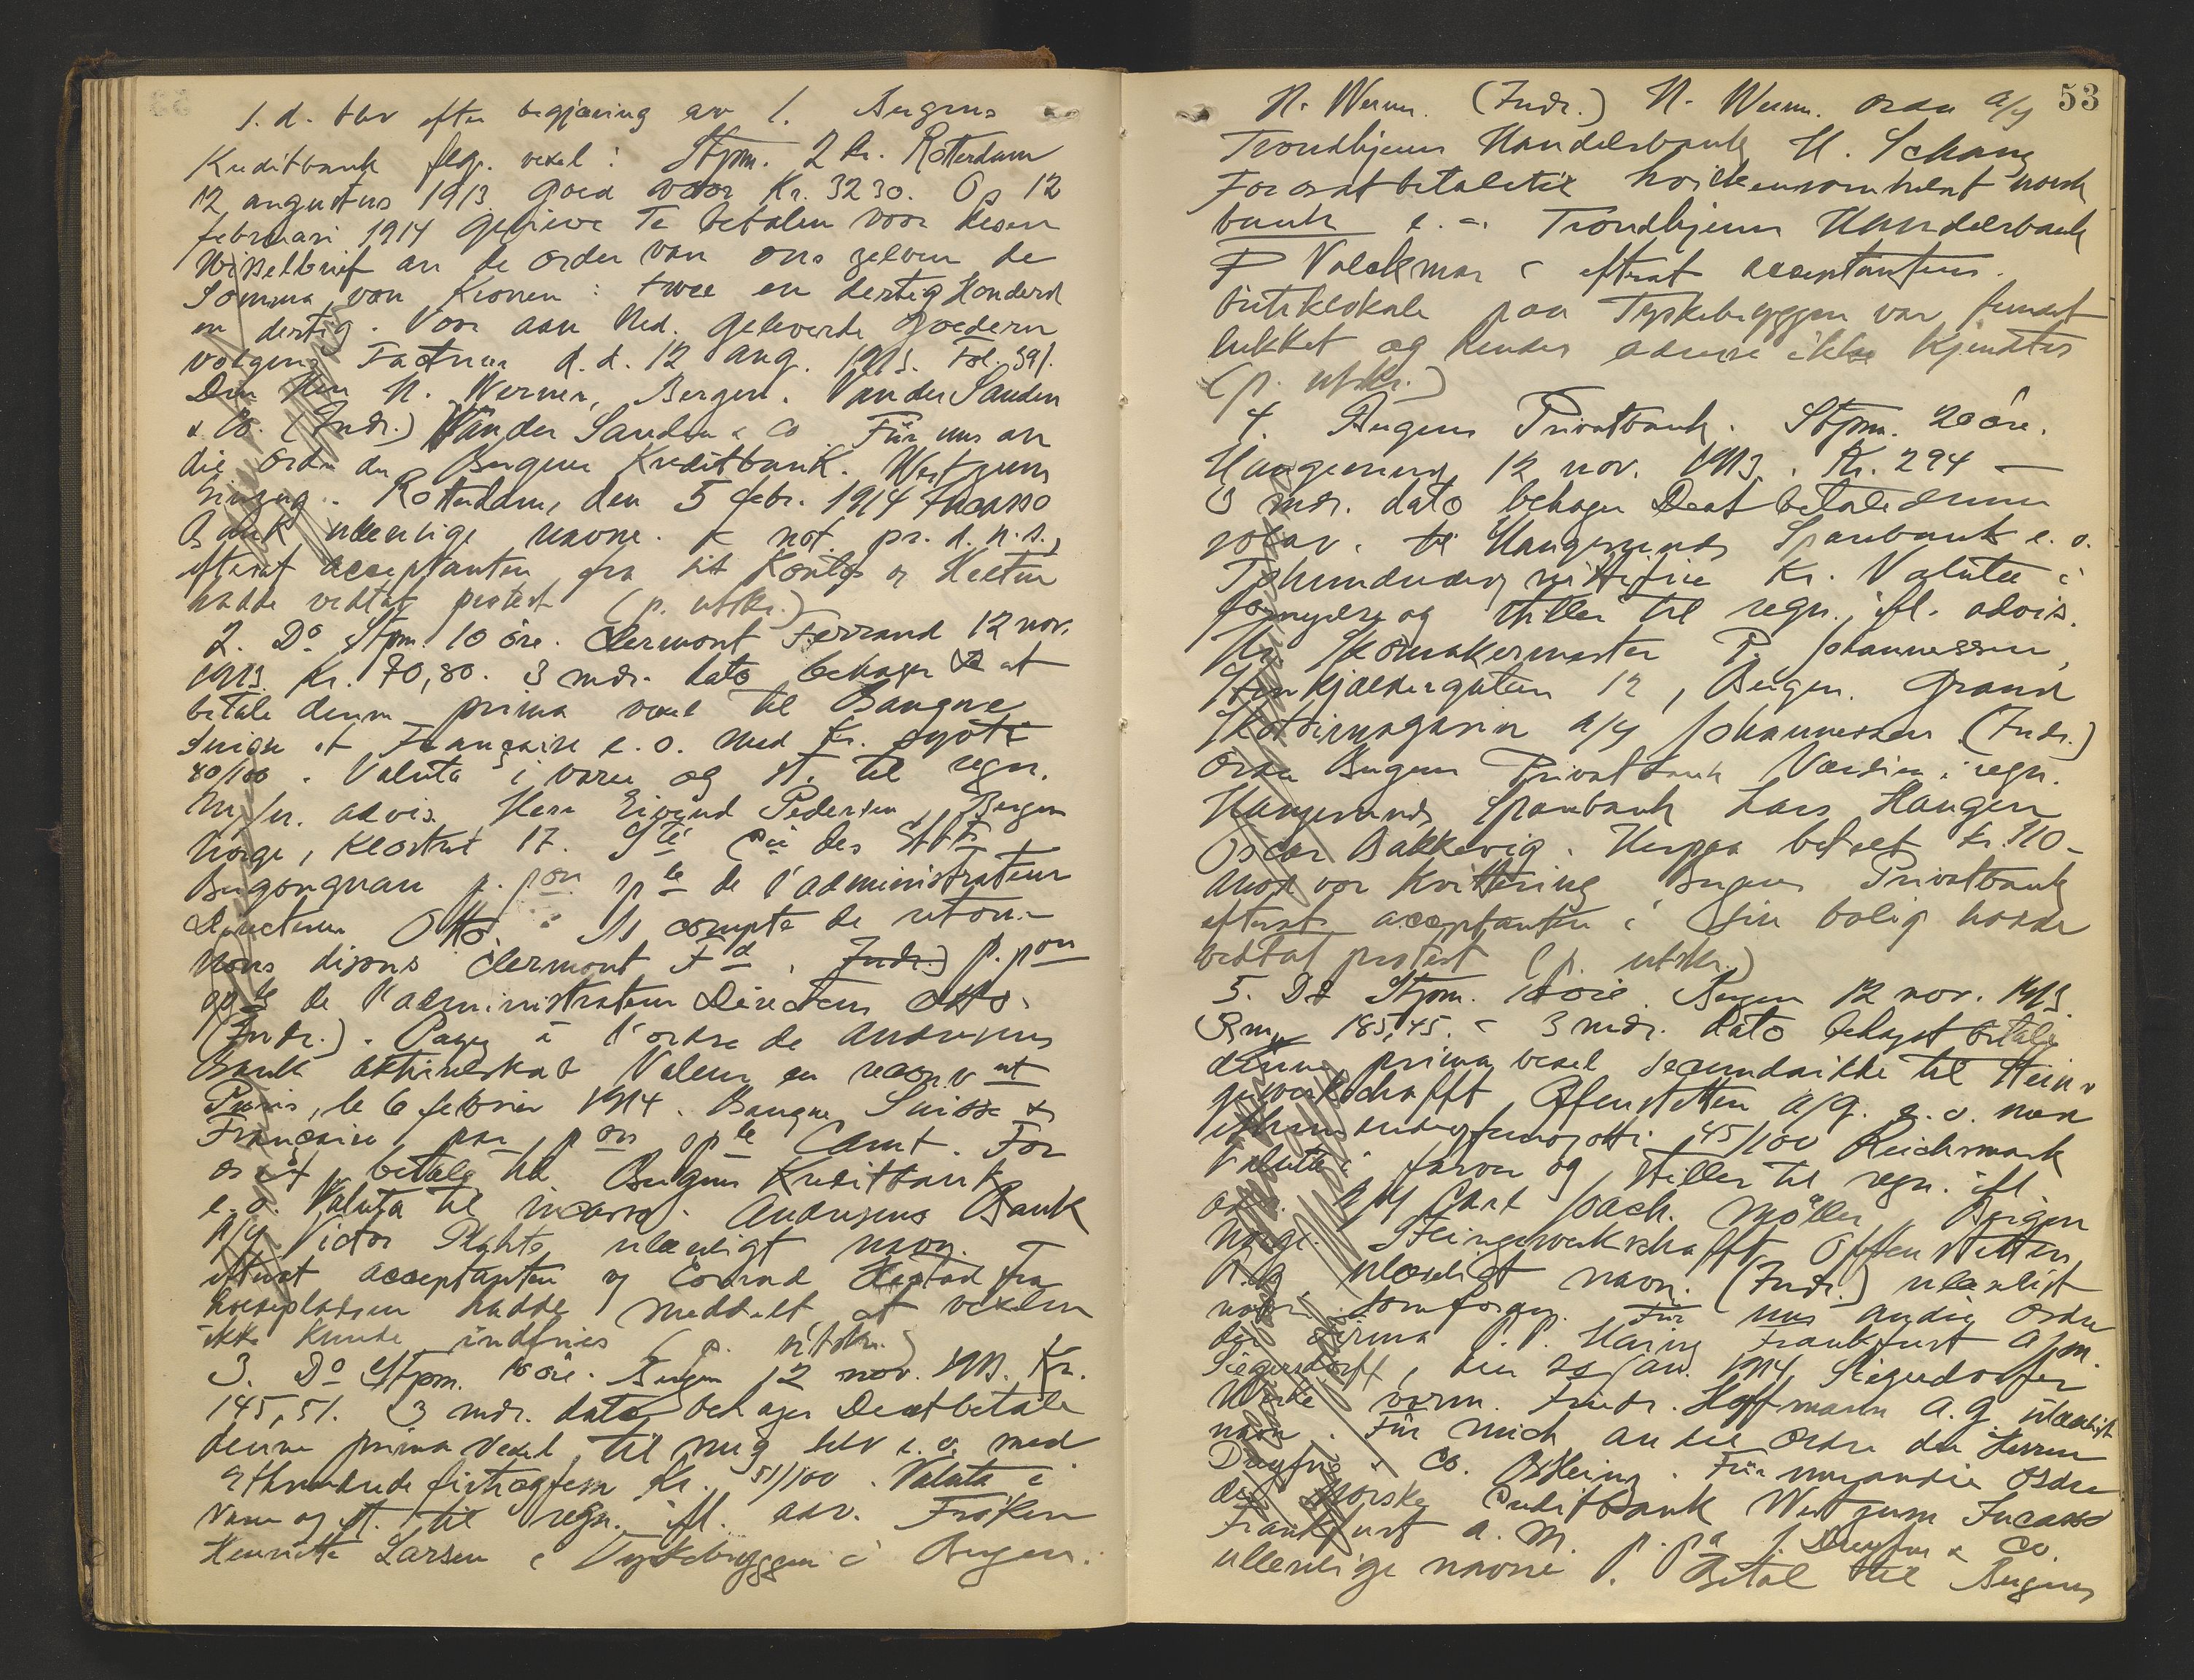 S.d. blev efter begjæring av 1. Bergens
Kreditbank flg. vexel: Stpm. 2 kr. Rotterdam
12 augustus 1913 goed voor Kr. 3230. Op 12
februari 1914 gelieve Te betalen voor desen
Wisselbrief an de order van ons zelven de
Somma van Kronen: twee en dertig Honderd
en dertig. Voor aan Ued. geleverde goederen
volgens Factuur d.d. 12 aug. 1913. Fol. 391.
Den Heer N. Werner, Bergen. Van der Sanden
& Co. (Indr.) Van der Sanden & Co Für uns an
die Order der Bergens Kreditbank. Wert zum
Einzug. Rotterdam, den 5 febr. 1914 Incasso
Bank ulæselige navne. not. pr. d. n. s.,
efterat acceptanten fra sit Kontor
hadde vedtat protest (p. utskr.)
2. Do Stpm. 10 öre. Clermont Ferrand 12 nov.
1913. Kr. 70,80. 3 mdr. dato behager De at
betale denne prima vexel til Banque
Suisse et Française e. o. med Kr. sytti
80/100. Valuta i varer og st. til regn.
advis. Herr Eivind Pedersen, Bergen
Norge, Klostret 17. Sté Cie des
p. pon de l'administrateur
Directeur Otto. compte de retour
Nous disons Clermont Fd. Indr.) p. pon
de l'administrateur Directeur Otto.
(Indr.). Payez à l'ordre de Andresens
Bank aktieselskab Valeur en
Paris, le 6 febrier 1914. Banque Suisse &
Française par pon Camt. For
os at betale til Bergens Kreditbank
e. o. Valuta til incasso. Andresens Bank
A/S Victor Plahte ulæseligt navn.
efterat acceptanten fra
hadde meddelt at vexelen
ikke kunde indfries (p. utskr.)
3. Do Stpm. 10 öre. Bergen 12 nov. 1913. Kr.
145,51. 3 mdr. dato behager De at betale
denne prima vexel til mig selv e. o. med
Ethundrede firtiogfem Kr. 51/100. Valuta i
varer og st. til regn. ifl. adv. Frøken
Henriette Larsen Tyskebryggen i Bergen.
53
N. Werner. (Indr.) N. Werner. ordre a/s
Trondhjems Handelsbank H. Schang
For os at betale til hvilkensomhelst norsk
bank e. o. Trondhjems Handelsbank
Volckmar efterat acceptantens
butiklokale paa Tyskebryggen var fundet
lukket og hendes adresse ikke kjendtes
(p. utskr.)
4. Bergens Privatbank. Stpm. 20 öre.
Haugesund 12 nov. 1913. Kr. 294 —
3 mdr. dato behager De at betale denne
til Haugesunds Sparebank e. o.
Tohundredeog nittifire Kr. Valuta i
og stiller til regn. ifl. advis.
Hr. Skomakermester P. Johannessen,
12, Bergen. Grand
Skotøimagasin a/s Johannessen (Indr.)
Ordre Bergens Privatbank Værdien i regn.
Haugesunds Sparebank Lars Haugen
Oscar Bakkevig. Herpaa betalt kr. 110 –
mod vor Kvittering Bergens Privatbank
efterat acceptanten i sin bolig hadde
vedtat protest (p. utskr.)
5. Do Stpm. 10 öre. Bergen 12 nov. 1913.
Rm. 185,45. – 3 mdr. dato behaget betale
denne prima vexel secunda ikke til Stein-
gewerkschafft Offenstetten A/G. e. o. med
45/100 Reichsmark
Valuta i farver og stiller til regn. ifl.
adv. Carl Joach. Möller, Bergen
Norge. Steingewerkschafft Offenstetten
A.G. ulæseligt navn. (Indr.) ulæseligt
navn som forgg. Für uns an die Ordre
der Firma Häring Frankfurt a/m.
Siegersdorf, den Jan. 1914 Siegersdorfer
Werke vorm. Friedr. Hoffmann A.G. ulæseligt
navn. Für mich an die Ordre der Herren
Dreyfus & Co. Häring. Für uns an die Ordre
der Norske Creditbank Wert zum Incasso
Frankfurt a. M. p. pa J. Dreyfus & Co.
ulæselige navne. Betal til Bergens